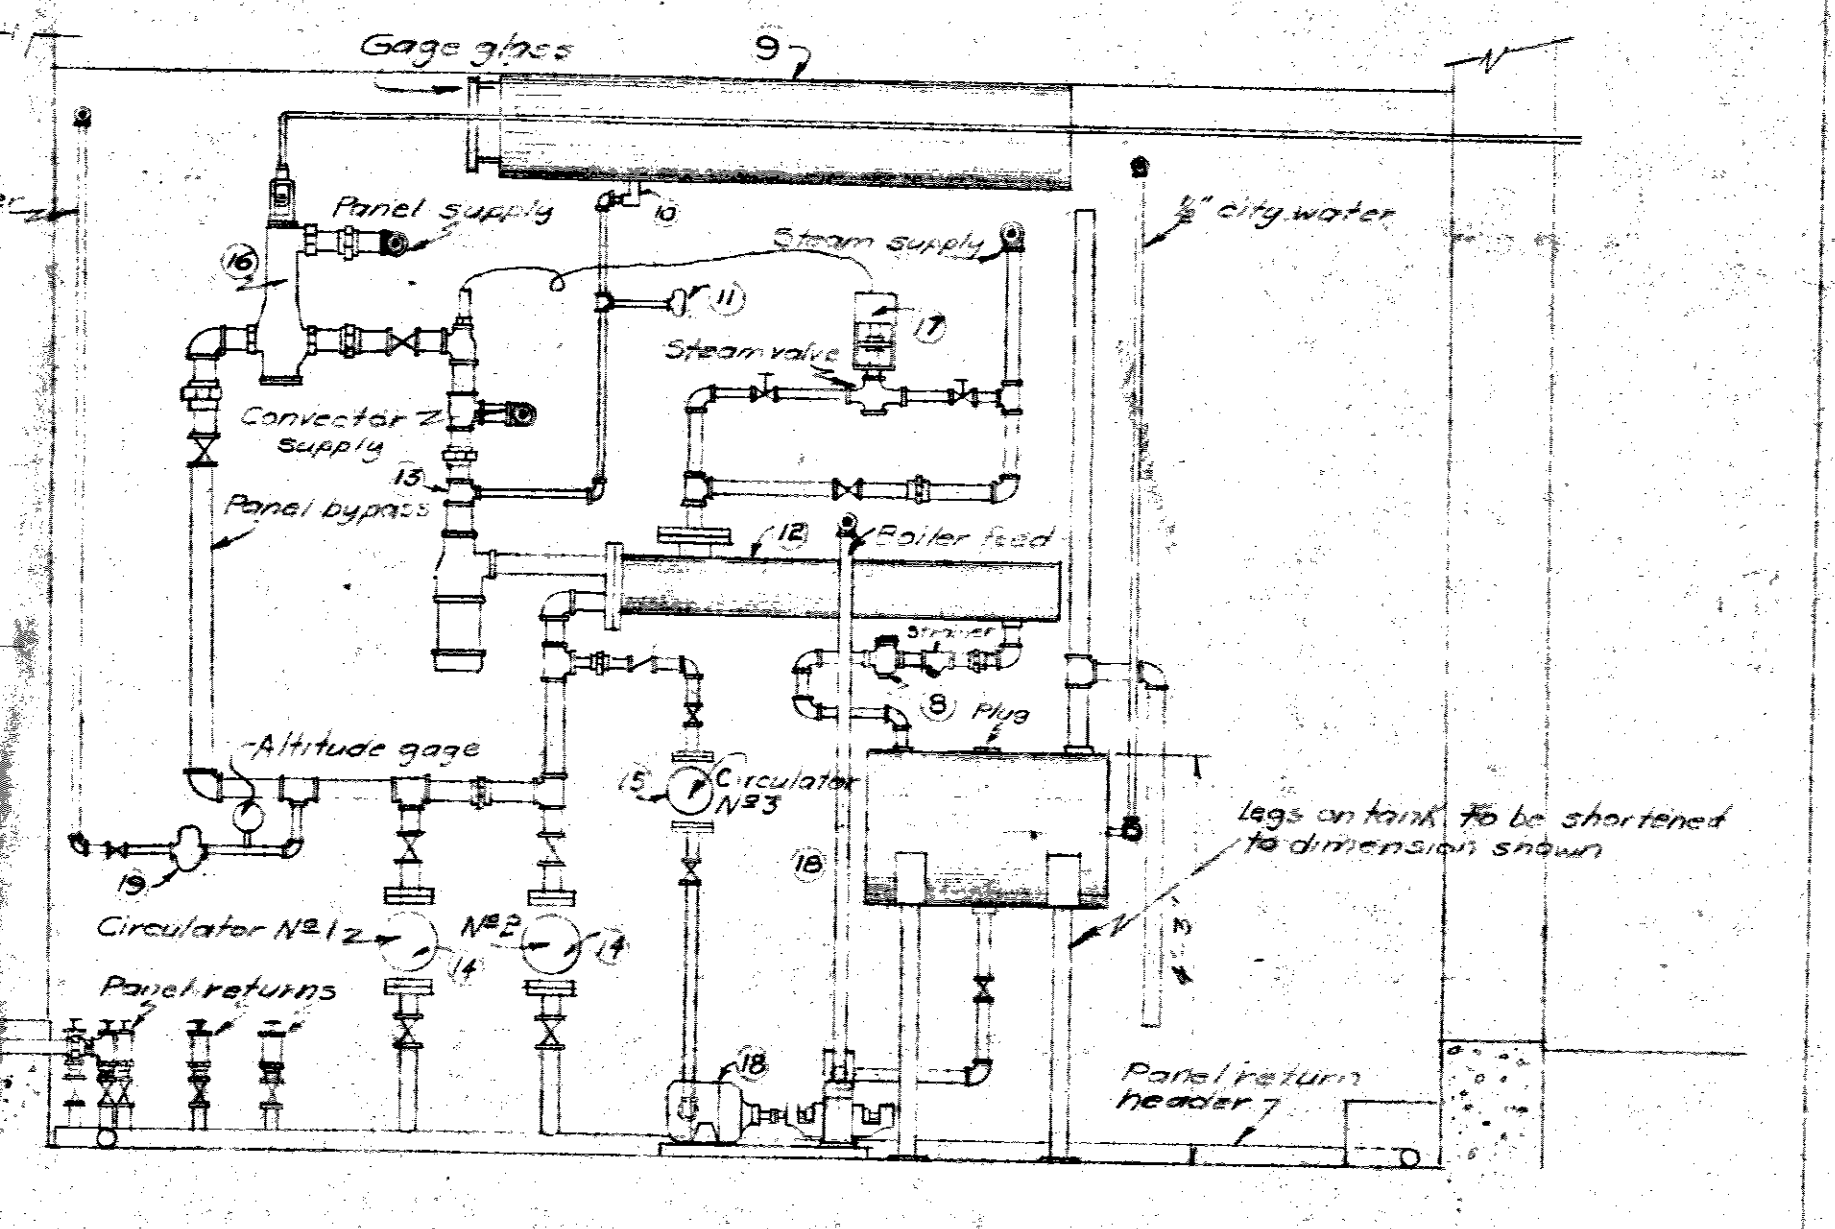 Gage glass
9
10
Panel supply
½" city water
Steam supply
16
11
17
Steam valve
Convector
supply
13
Panel bypass
12
Boiler feed
Strainer
8
Plug
Altitude gage
15
Circulator
Nº3
Legs on tank to be shortened
to dimension shown
18
19
Circulator Nº1
Nº2
14
14
3'
Panel returns
18
Panel return
header